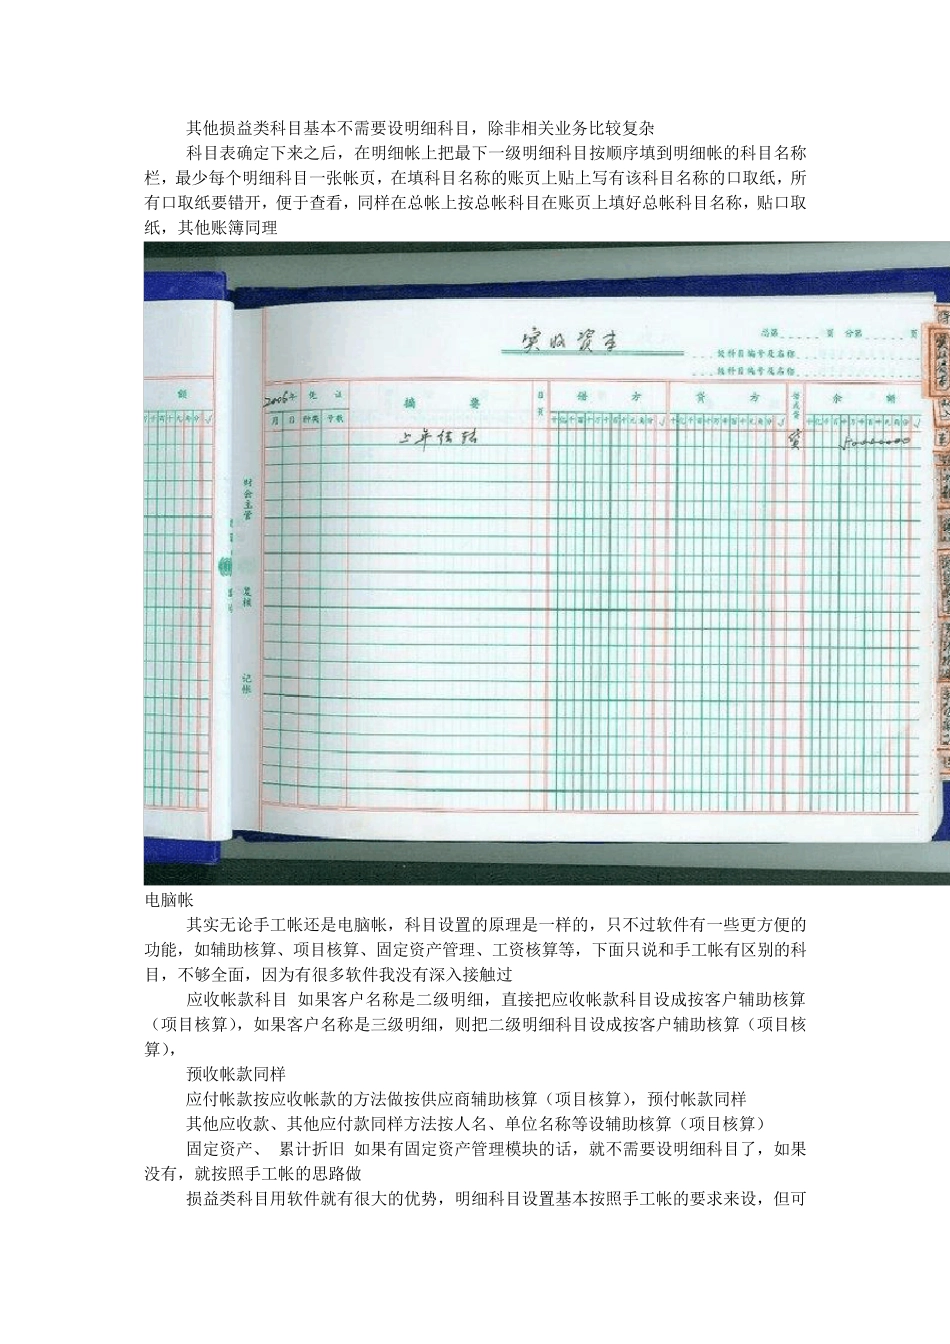 其他损益类科目基本不需要设明细科目，除非相关业务比较复杂
科目表确定下来之后，在明细帐上把最下一级明细科目按顺序填到明细帐的科目名称
栏，最少每个明细科目一张帐页，在填科目名称的账页上贴上写有该科目名称的口取纸，所
有口取纸要错开，便于查看，同样在总帐上按总帐科目在账页上填好总帐科目名称，贴口取
纸，其他账簿同理
实收资本
总第 页 分第 页
级科目编号及名称
级科目编号及名称
额
2006年 凭 证 摘 要 日页 借 方 贷 方 借或贷 余 额
月 日 种类 号数
上年结转 贷 50000000
财会主管
复核
记帐
电脑帐
其实无论手工帐还是电脑帐，科目设置的原理是一样的，只不过软件有一些更方便的
功能，如辅助核算、项目核算、固定资产管理、工资核算等，下面只说和手工帐有区别的科
目，不够全面，因为有很多软件我没有深入接触过
应收帐款科目 如果客户名称是二级明细，直接把应收帐款科目设成按客户辅助核算
（项目核算），如果客户名称是三级明细，则把二级明细科目设成按客户辅助核算（项目核
算），
预收帐款同样
应付帐款按应收帐款的方法做按供应商辅助核算（项目核算），预付帐款同样
其他应收款、其他应付款同样方法按人名、单位名称等设辅助核算（项目核算）
固定资产、 累计折旧 如果有固定资产管理模块的话，就不需要设明细科目了，如果
没有，就按照手工帐的思路做
损益类科目用软件就有很大的优势，明细科目设置基本按照手工帐的要求来设，但可